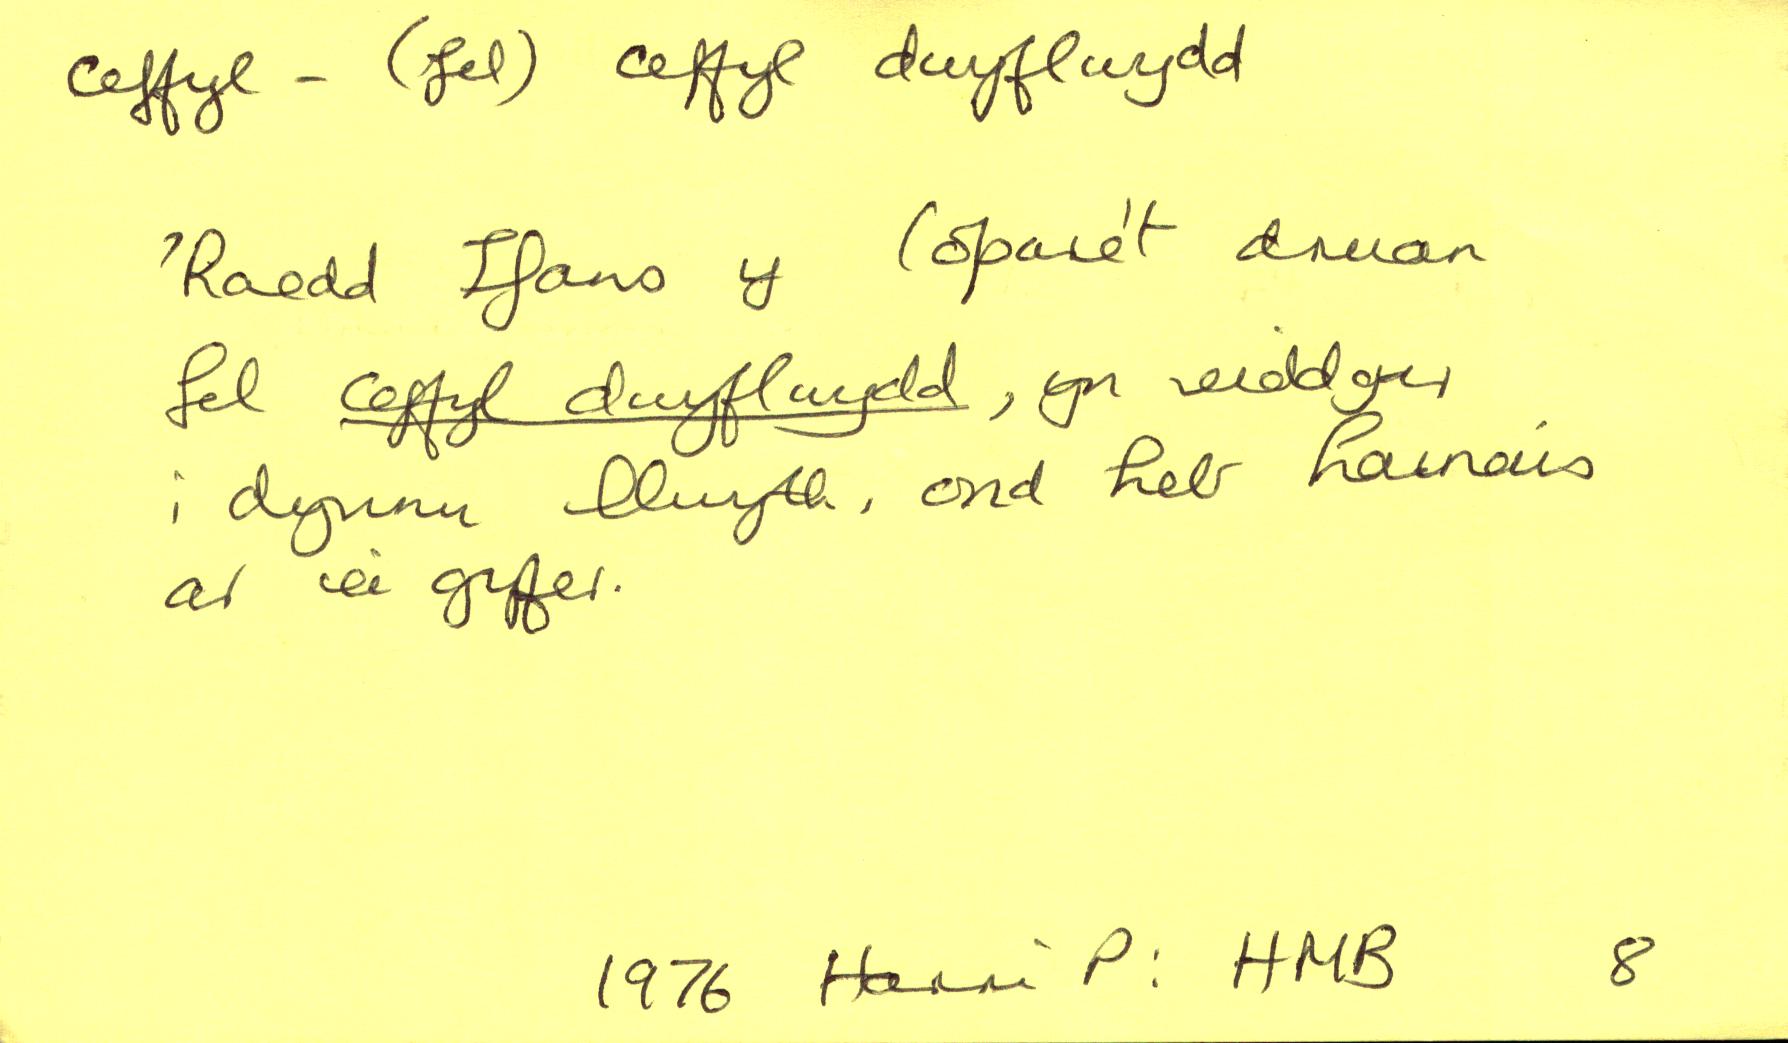 ceffyl - (fel) ceffyl dwyflwydd
'Raedd Ifans y Cóparét druan
fel ceffyl dwyflwydd, yn eiddgar
i dynnu llwyth, ond heb harnais
ar ei gyfer.
1976 Harri P: HMB 8